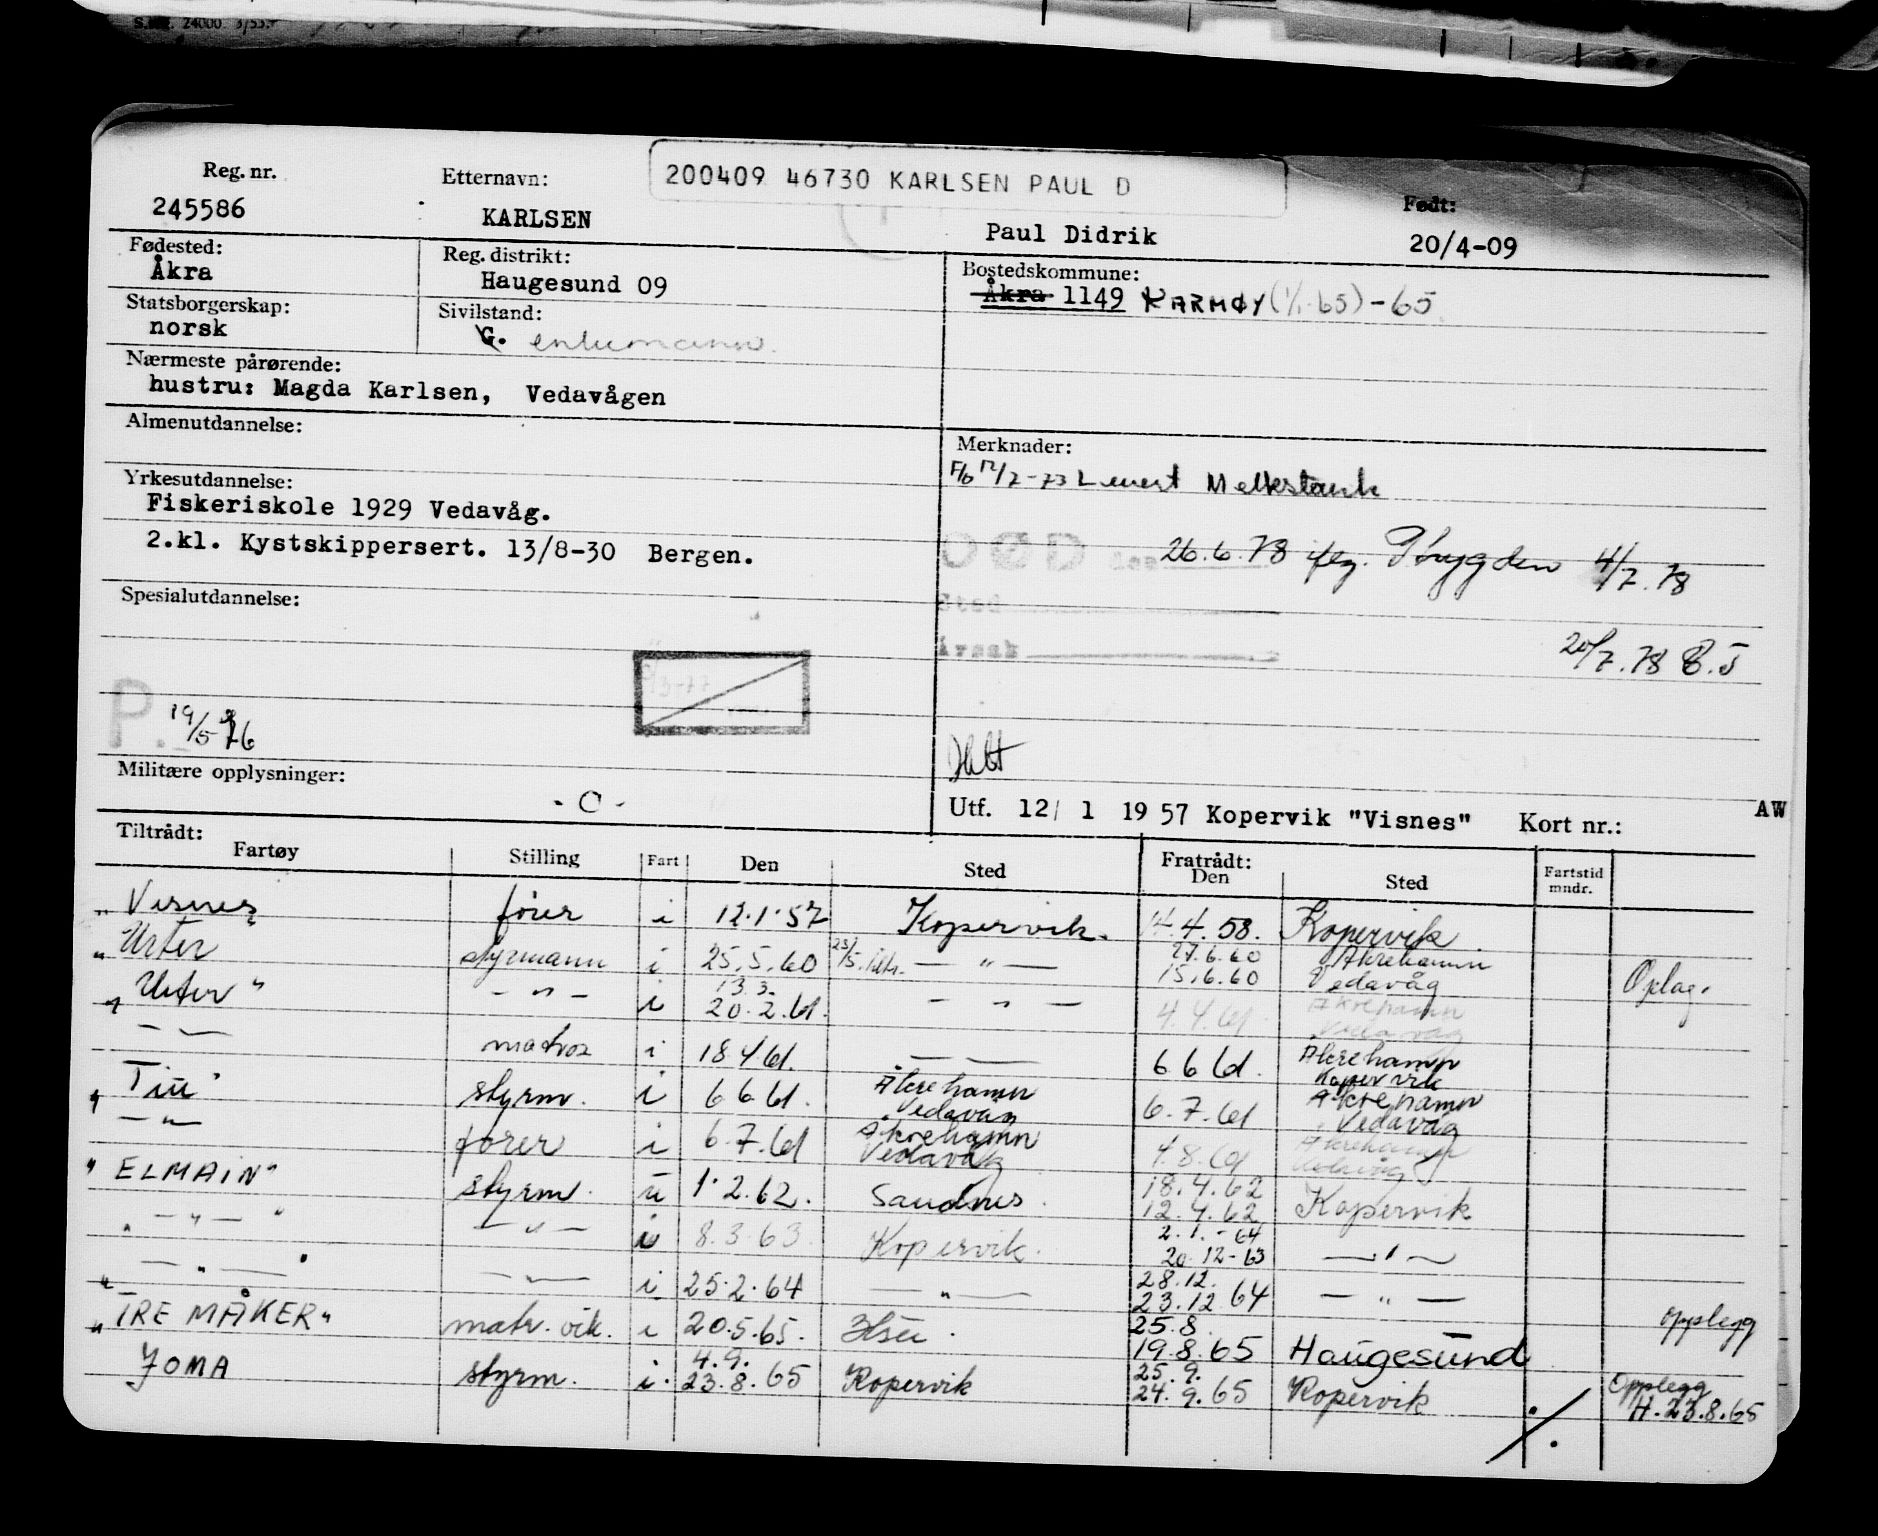 S.  24000 3/55.
200409 46730 KARLSEN PAUL D
Reg. nr. Etternavn: Født:
245586 KARLSEN Paul Didrik 20/4-09
Fødested: Reg. distrikt: Bostedskommune:
Åkra Haugesund 09 Åkra 1149 KARMØY (1/1-65) - 65
Statsborgerskap: Sivilstand:
norsk G. enkemann
Nærmeste pårørende:
hustru: Magda Karlsen, Vedavågen
Almenutdannelse: Merknader:
F/b 12/7-73 Levert Melkstank
Yrkesutdannelse:
Fiskeriskole 1929 Vedavåg.
2.kl. Kystskippersert. 13/8-30 Bergen.
DØD den 26.6.78 iflg. Trygden 4/7.78
Spesialutdannelse: Sted
Årsak 20/7.78
13-77
P. 19/5-76
Militære opplysninger:
- O -
Utf. 12/ 1 19 57 Kopervik "Visnes" Kort nr.: AW
Tiltrådt: Fratrådt:
Fartøy Stilling Fart Den Sted Den Sted Fartstid mndr.
"Visnes fører i 12.1.57 Kopervik. 14.4.58. Kopervik.
27.6.60 Åkrehamn
"Urter styrmann i 25.5.60 23/5. — " — 15.6.60 Vedavåg Oplag.
13.3.
"Urter" - " - i 20.2.61. — " — 4.4.61. Åkrehamn Vedavåg
— — matros i 18.4.61. — — 6.6.61. Åkrehamn Kopervik
"Tiu" styrm. i 6.6.61. Åkrehamn Vedavåg 6.7.61 Åkrehamn Vedavåg
— " — fører i 6.7.61 Åkrehamn Vedavåg 4.8.61 Åkrehamn Vedavåg
18.4.62
"ELMAIN" styrm. u 1.2.62. Sandnes. 12.4.62 Kopervik
2.1.-64
" — " — " — " — i 8.3.63 Kopervik. 20.12-63 — " —
28.12.
— " — — " — i 25.2.64 — " — 23.12.64 — " — opplegg
25.8.
"TRE MÅKER" matr. vik. i 20.5.65. 19.8.65 Haugesund
4.9. 25.9. Opplegg
"JOMA styrm. i. 23.8.65 Kopervik 24.9.65 Kopervik H. 23.8.65
./.